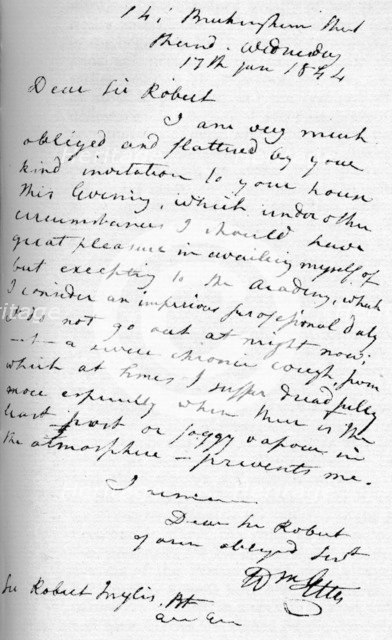 14 Buckingham Street
Strand. Wednesday
17th Jan 1844
Dear Sir Robert
I am very much
obliged and flattered by your
kind invitation to your house
this Evening, which under other
circumstances I should have
great pleasure in availing myself of
but excepting to the Academy, which
I consider an imperious professional duty
I do not go out at night now:
a severe chronic cough, from
which at times I suffer dreadfully
more especially when there is the
least frost or foggy vapour in
the atmosphere — prevents me.
I remain
Dear Sir Robert
your obliged Servt
Wm Etty
Sir Robert Inglis Bt
heritage